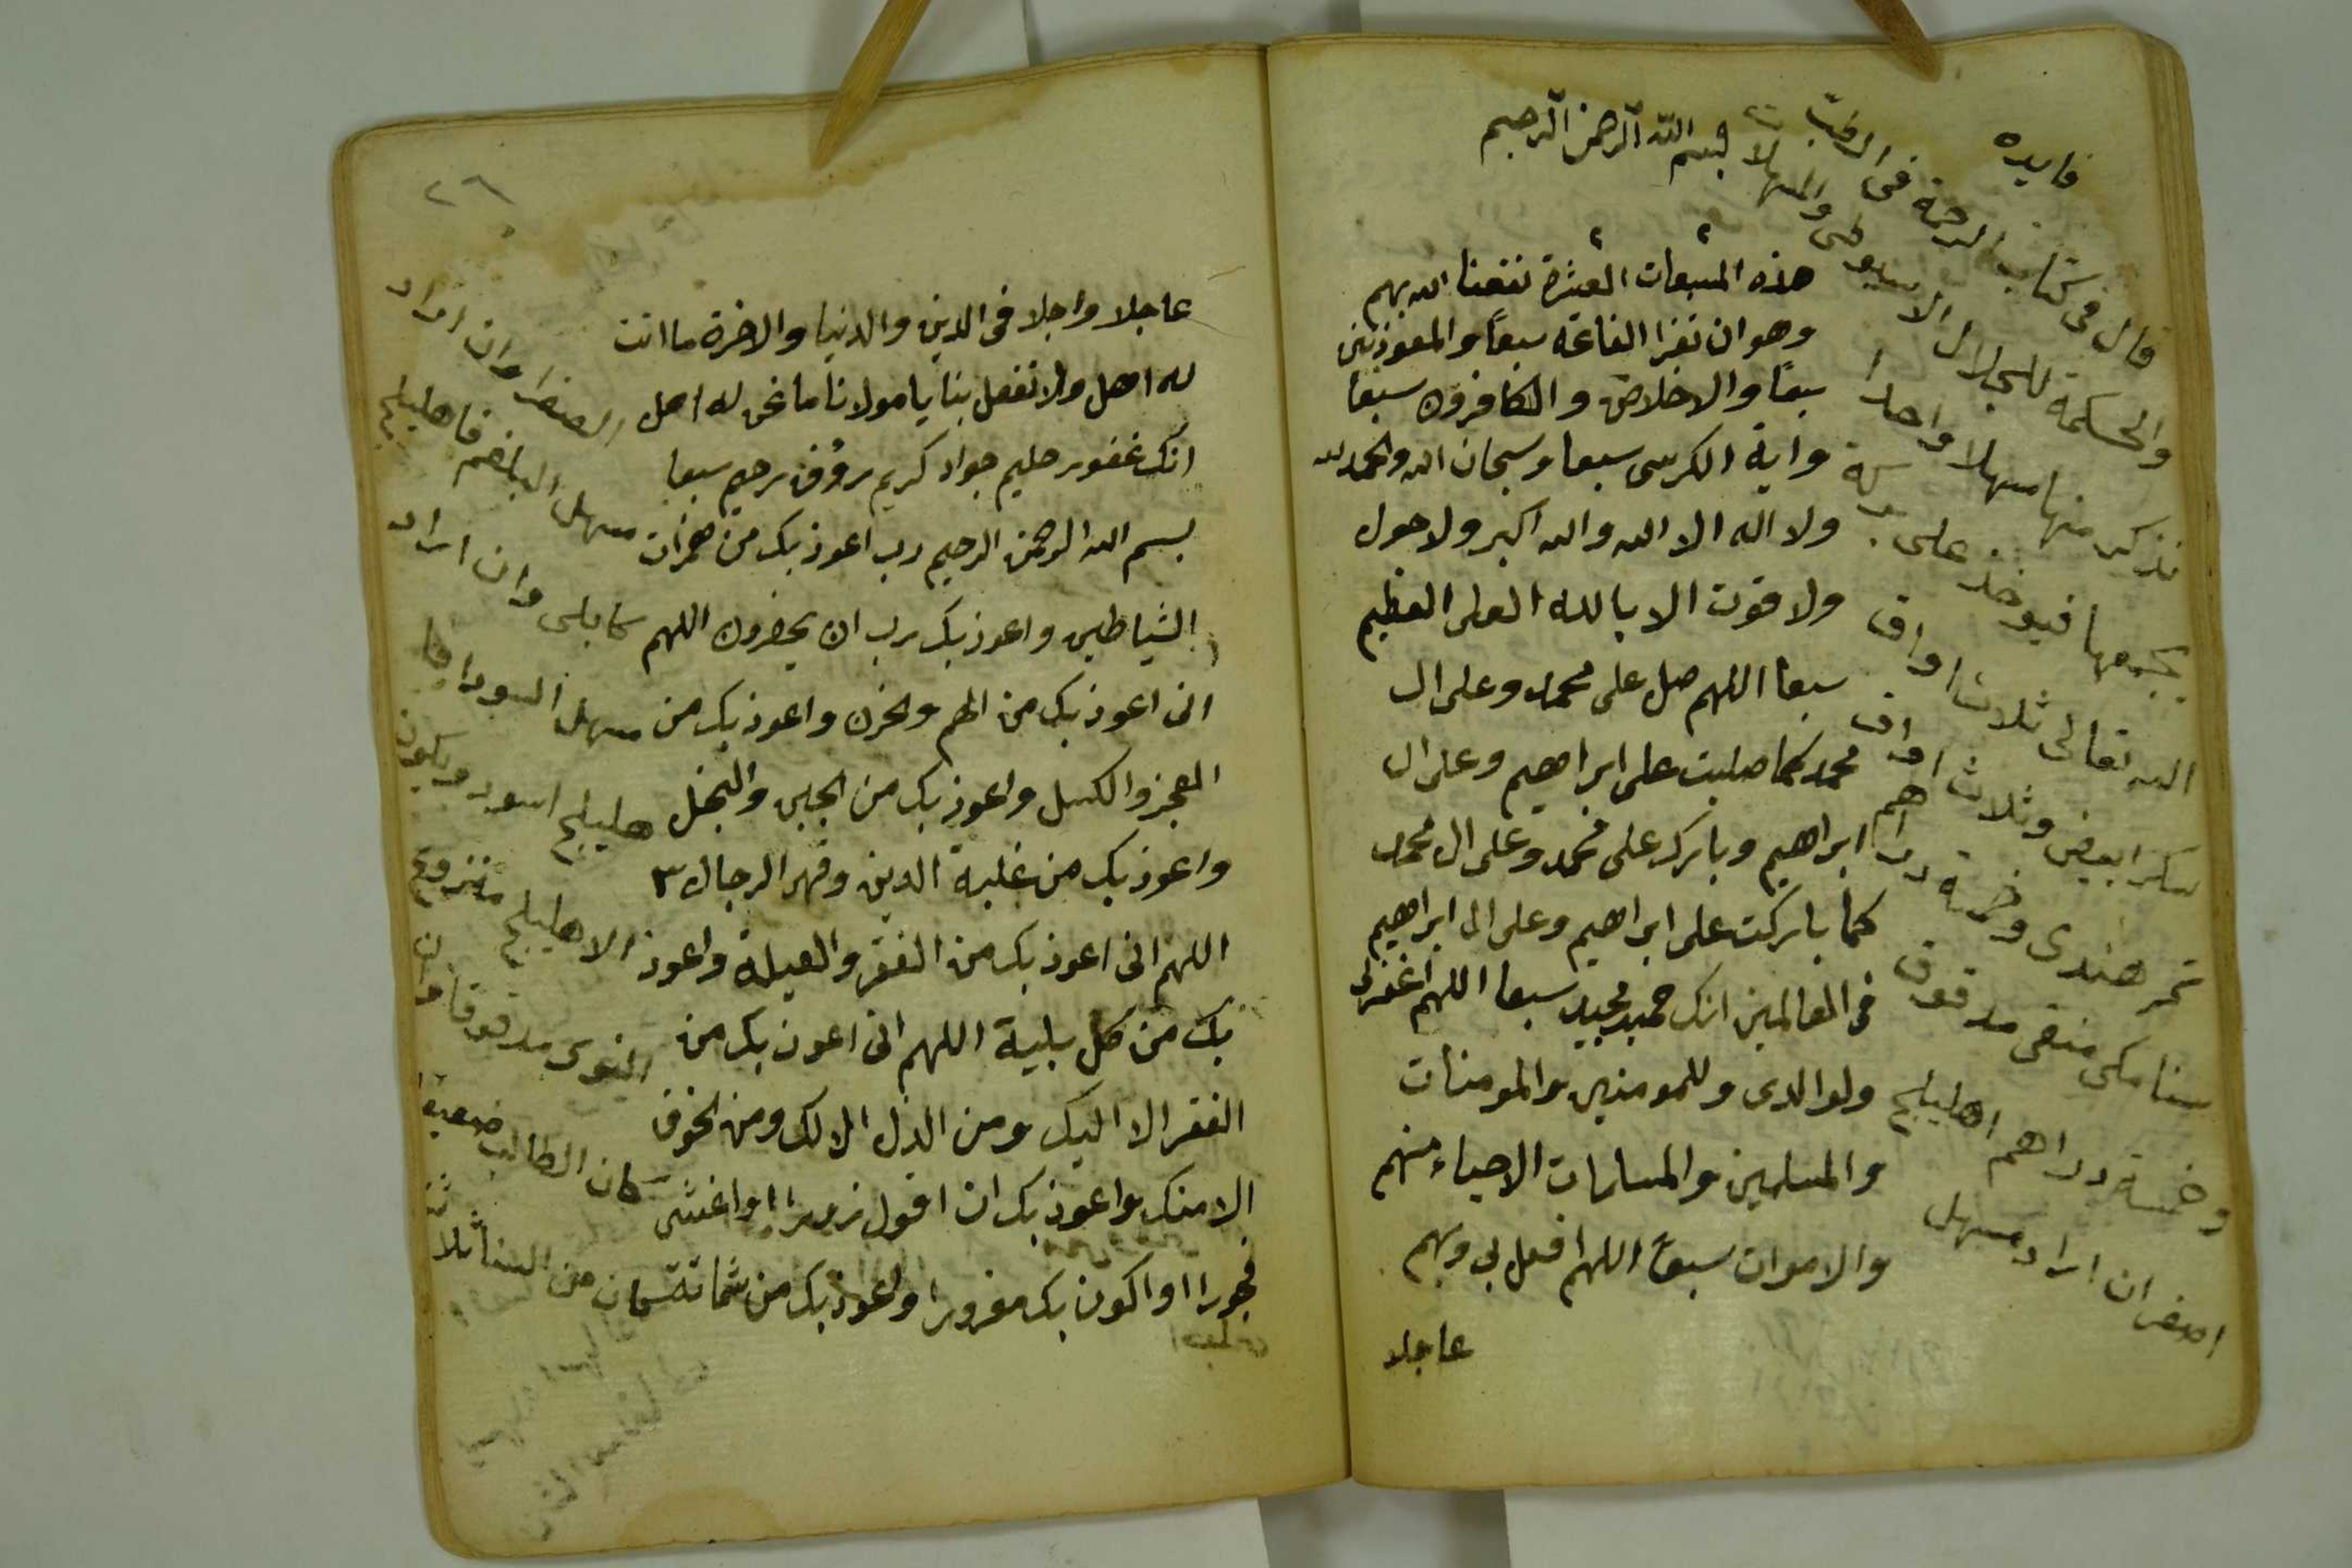 بسم الله الرحمن الرحيم
هذه المسبعات العشرة نفعنا الله بهم
وهو ان تقرا الفاتحة سبعاً والمعوذتين
سبعاً والاخلاص والكافرون سبعا
واية الكرسى سبعا وسبحان الله والحمد لله
ولا اله الا الله والله اكبر ولا حول
ولا قوت الا بالله العلى العظيم
سبعا اللهم صل على محمد وعلى ال
محمد كما صليت على ابراهيم وعلى ال
ابراهيم وبارك على محمد وعلى ال محمد
كما باركت على ابراهيم وعلى ال ابراهيم
فى العالمين انك حميد مجيد سبعا اللهم اغفرلى
ولوالدى وللمومنين والمومنات
والمسلمين والمسلمات الاحياء منهم
والاموات سبعاً اللهم افعل بى وبهم
عاجلا
فايده
قال فى كتاب الرحمة فى الطب
والحكمة للجلال الاسيوطى والمسهلات
نذكر منها مسهلا واحدا
يجمعها فيوخذ على بركة
الله تعالى ثلاث اواق
سكر ابيض وثلاث اواق
تمر هندى وخمسة دراهم
سنا مكى منقى مدقوق
وخمسة دراهم اهليلج
اصفر ان اراد مسهل
٢٦
عاجلا واجلا فى الدين والدنيا والاخرة ما انت
له اهل ولا تفعل بنا يا مولانا ما نحن له اهل
انك غفور حليم جواد كريم روُف رحيم سبعا
بسم الله الرحمن الرحيم رب اعوذ بك من همزات
الشياطين واعوذ بك رب ان يحضرون اللهم
انى اعوذ بك من الهم والحزن واعوذ بك من
العجز والكسل واعوذ بك من الجبن والبخل
واعوذ بك من غلبة الدين وقهر الرجال ٣
اللهم انى اعوذ بك من الفقر والعيلة واعوذ
بك من كل بلية اللهم انى اعوذ بك من
الفقر الا اليك ومن الذل الا لك ومن الخوف
الا منك واعوذ بك ان اقول زورا او اغشى
فجورا او اكون بك مغرورا واعوذ بك من شماتة
الصفرا وان اراد
مسهل البلغم فاهليلج
كابلى وان اراد
مسهل السودا فا
هليلج اسود ويكون
الاهليلج منزوع
النوى مدقوقا وان
كان الطالب ضعيفا
من السنا ثلاث